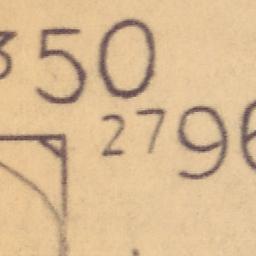 350
2796